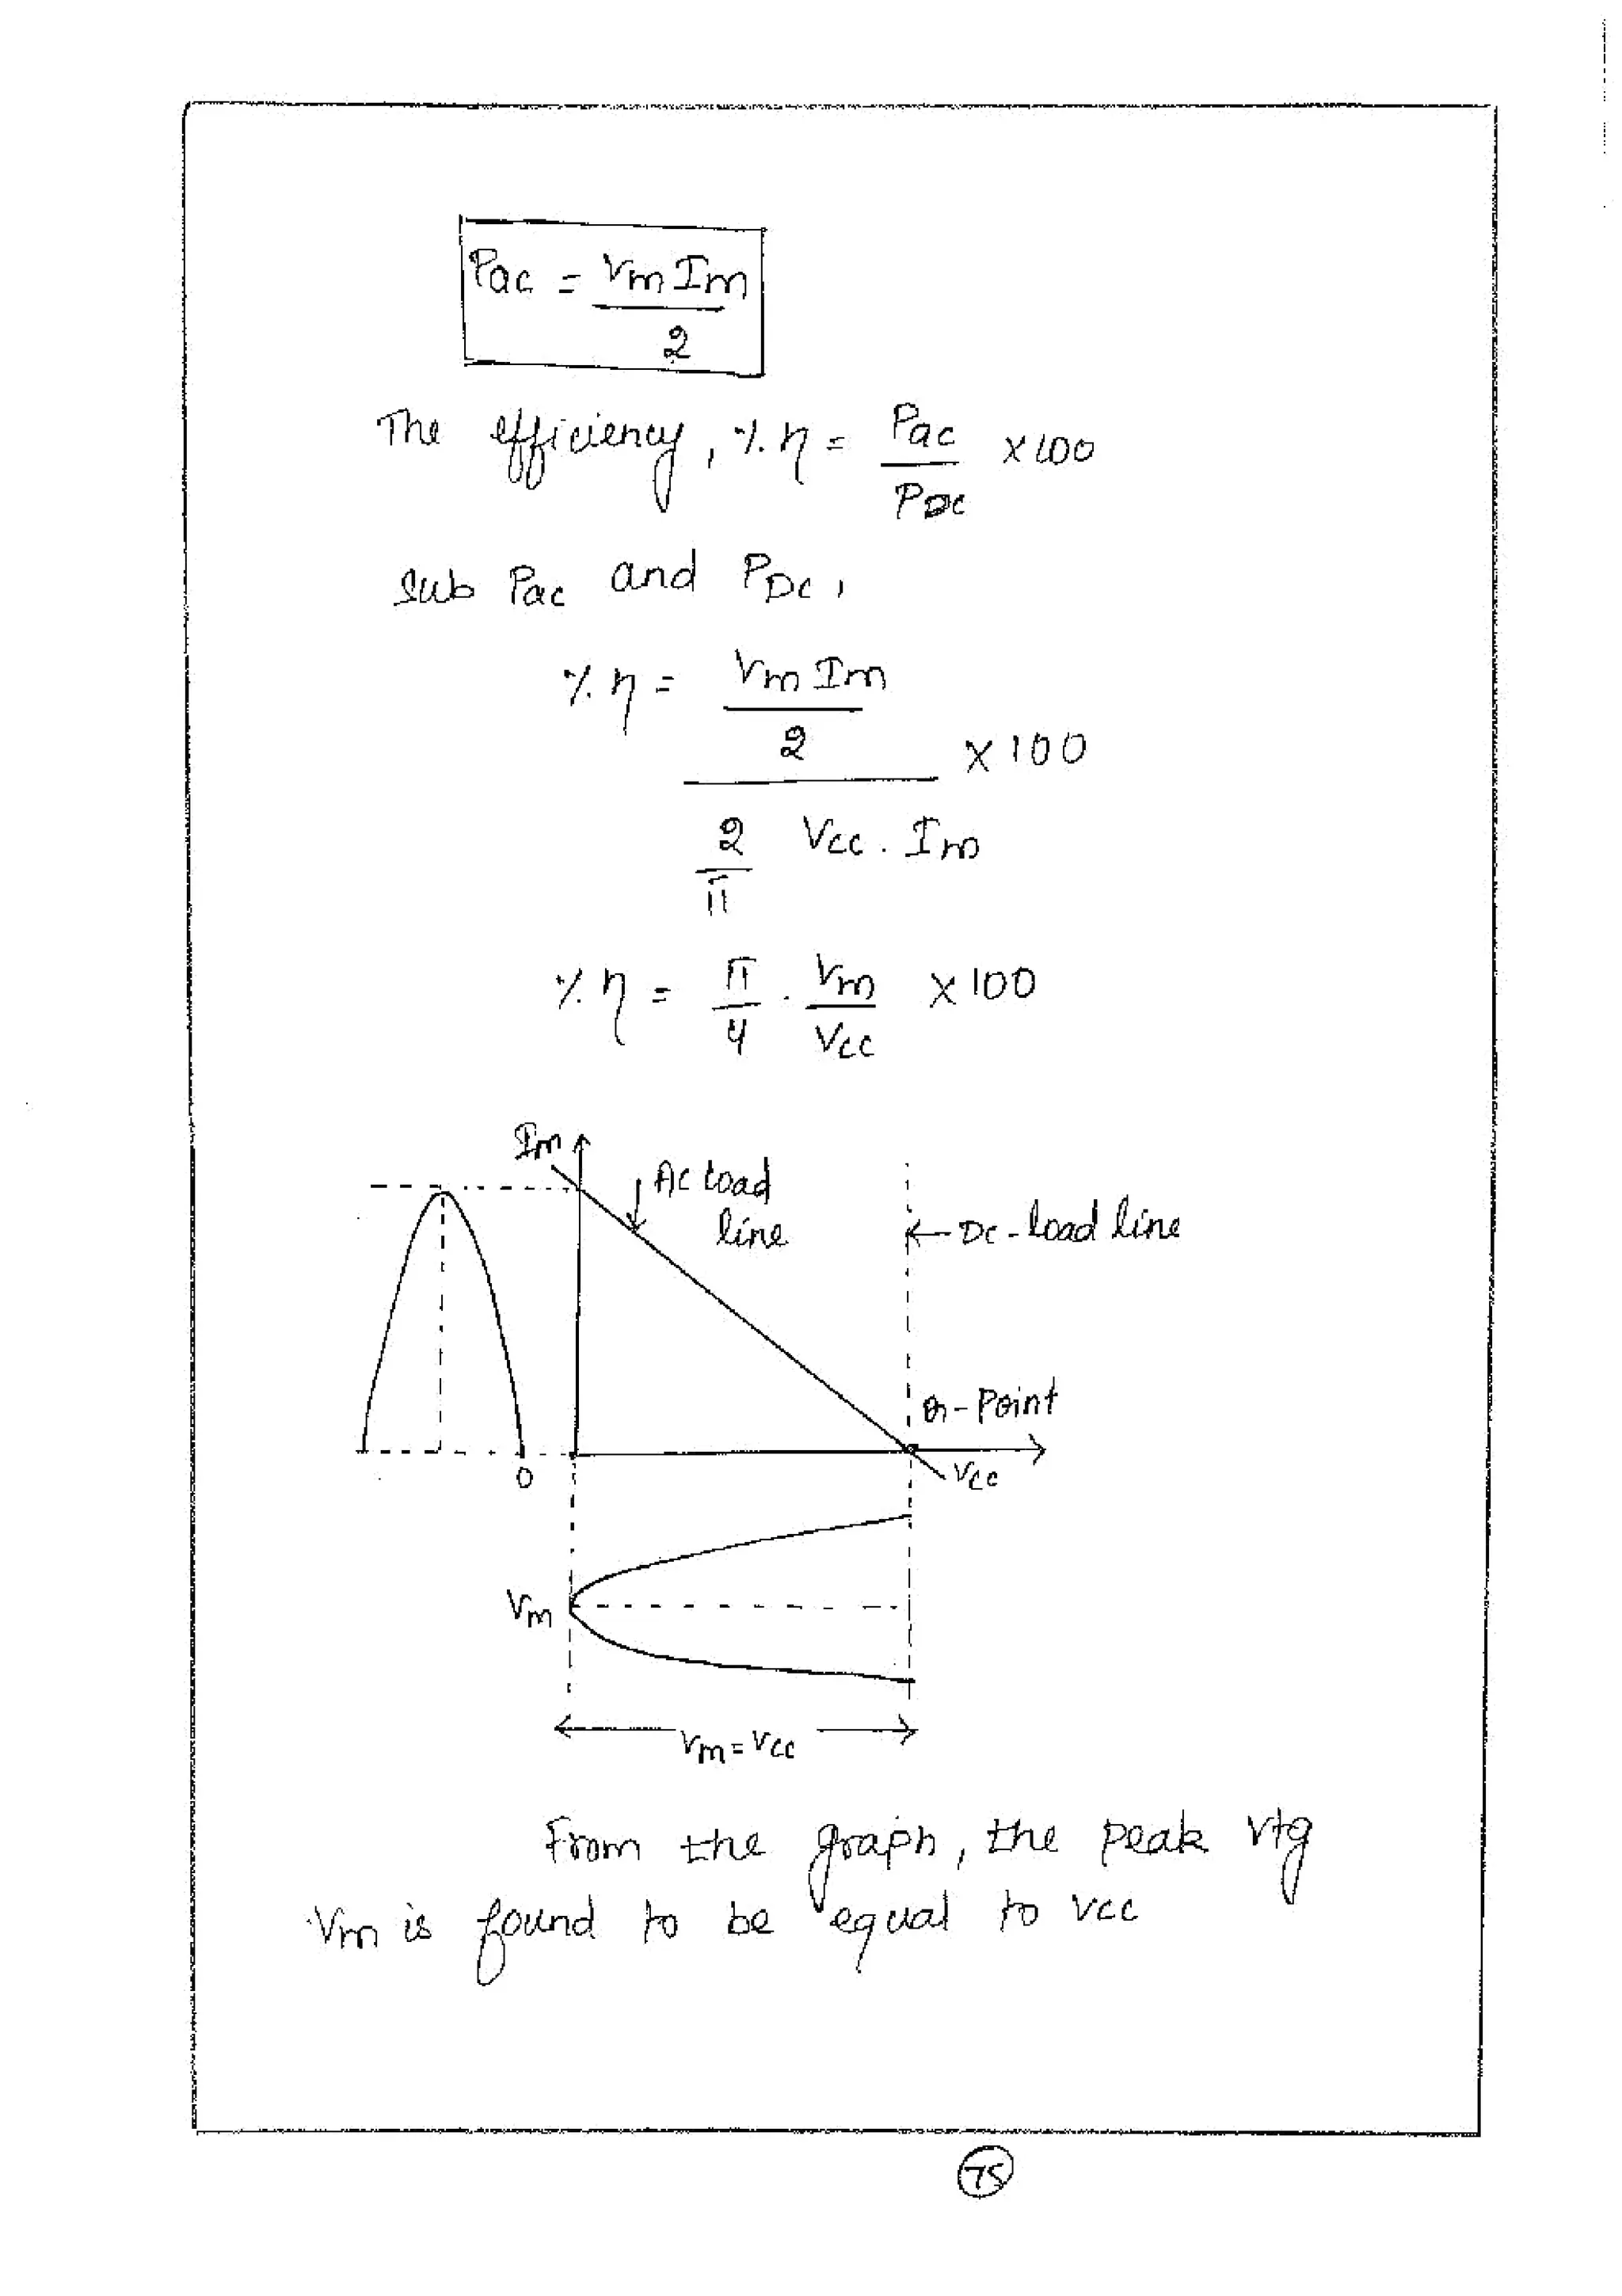 Pac = Vm Im
2
The efficiency, % η = Pac / PDC × 100
Sub Pac and PDC,
% η = Vm Im
2
× 100
2 / π Vcc . Im
% η = π / 4 . Vm / Vcc × 100
Im
Ac load
line
← Dc - load line
Q - Point
0
Vcc
Vm
Vm = Vcc
From the graph, the peak vtg
Vm is found to be equal to Vcc
75